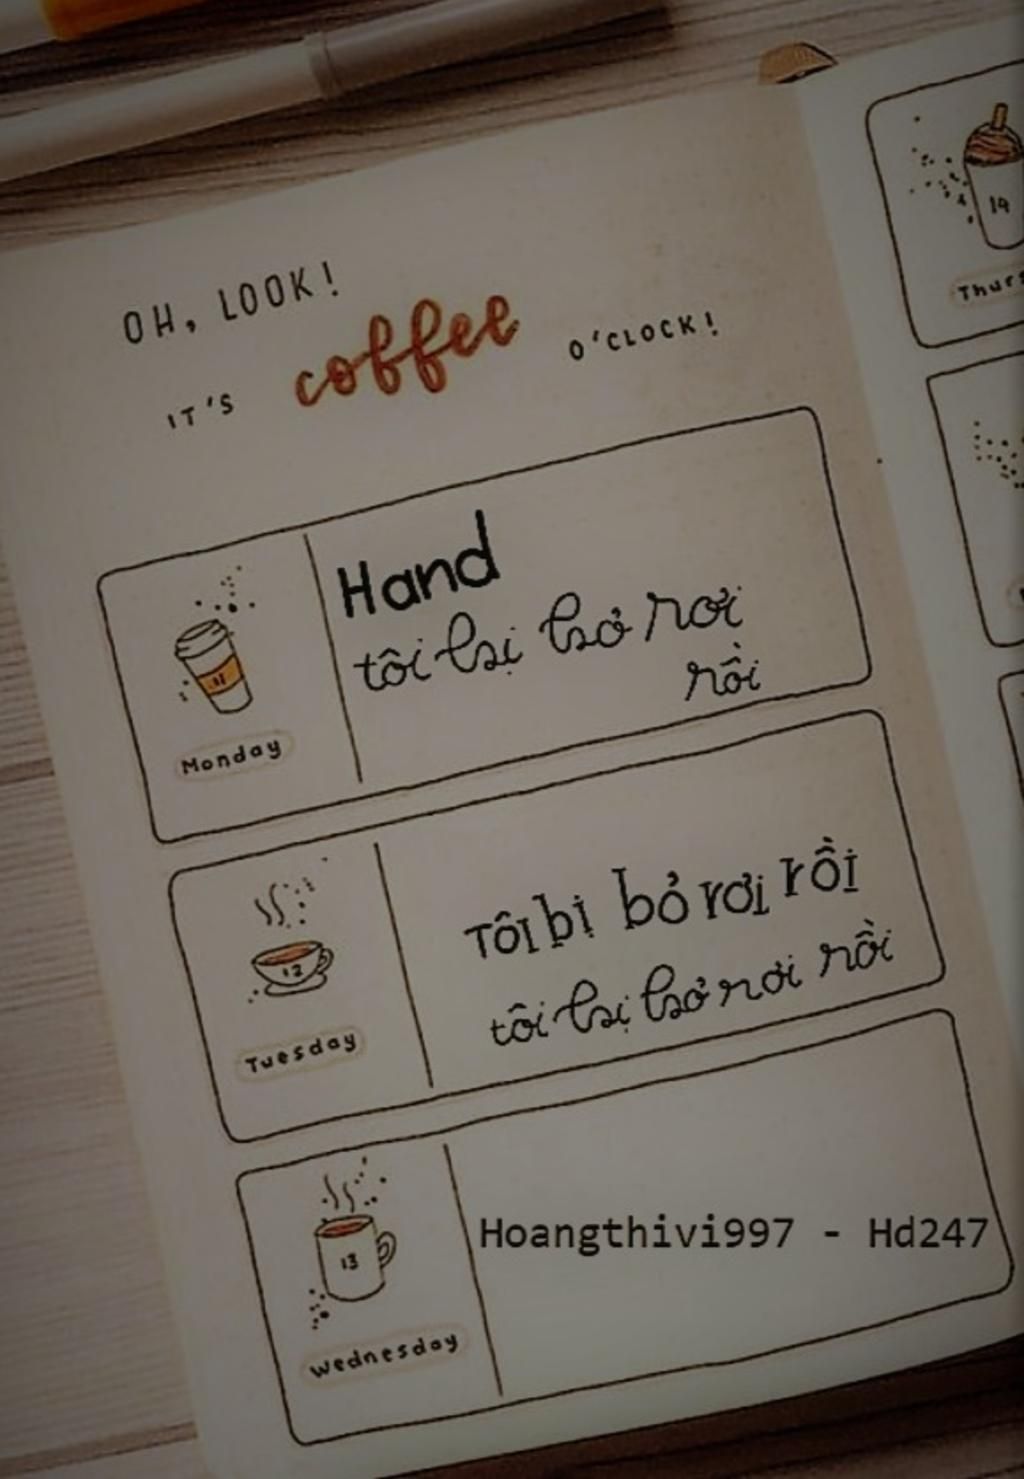 OH, LOOK!
IT'S coffee O'CLOCK!
Hand
tôi bị bỏ rơi
rồi
11
Monday
Tôi bị bỏ rơi rồi
tôi bị bỏ rơi rồi
12
Tuesday
Hoangthivi997 - Hd247
13
Wednesday
14